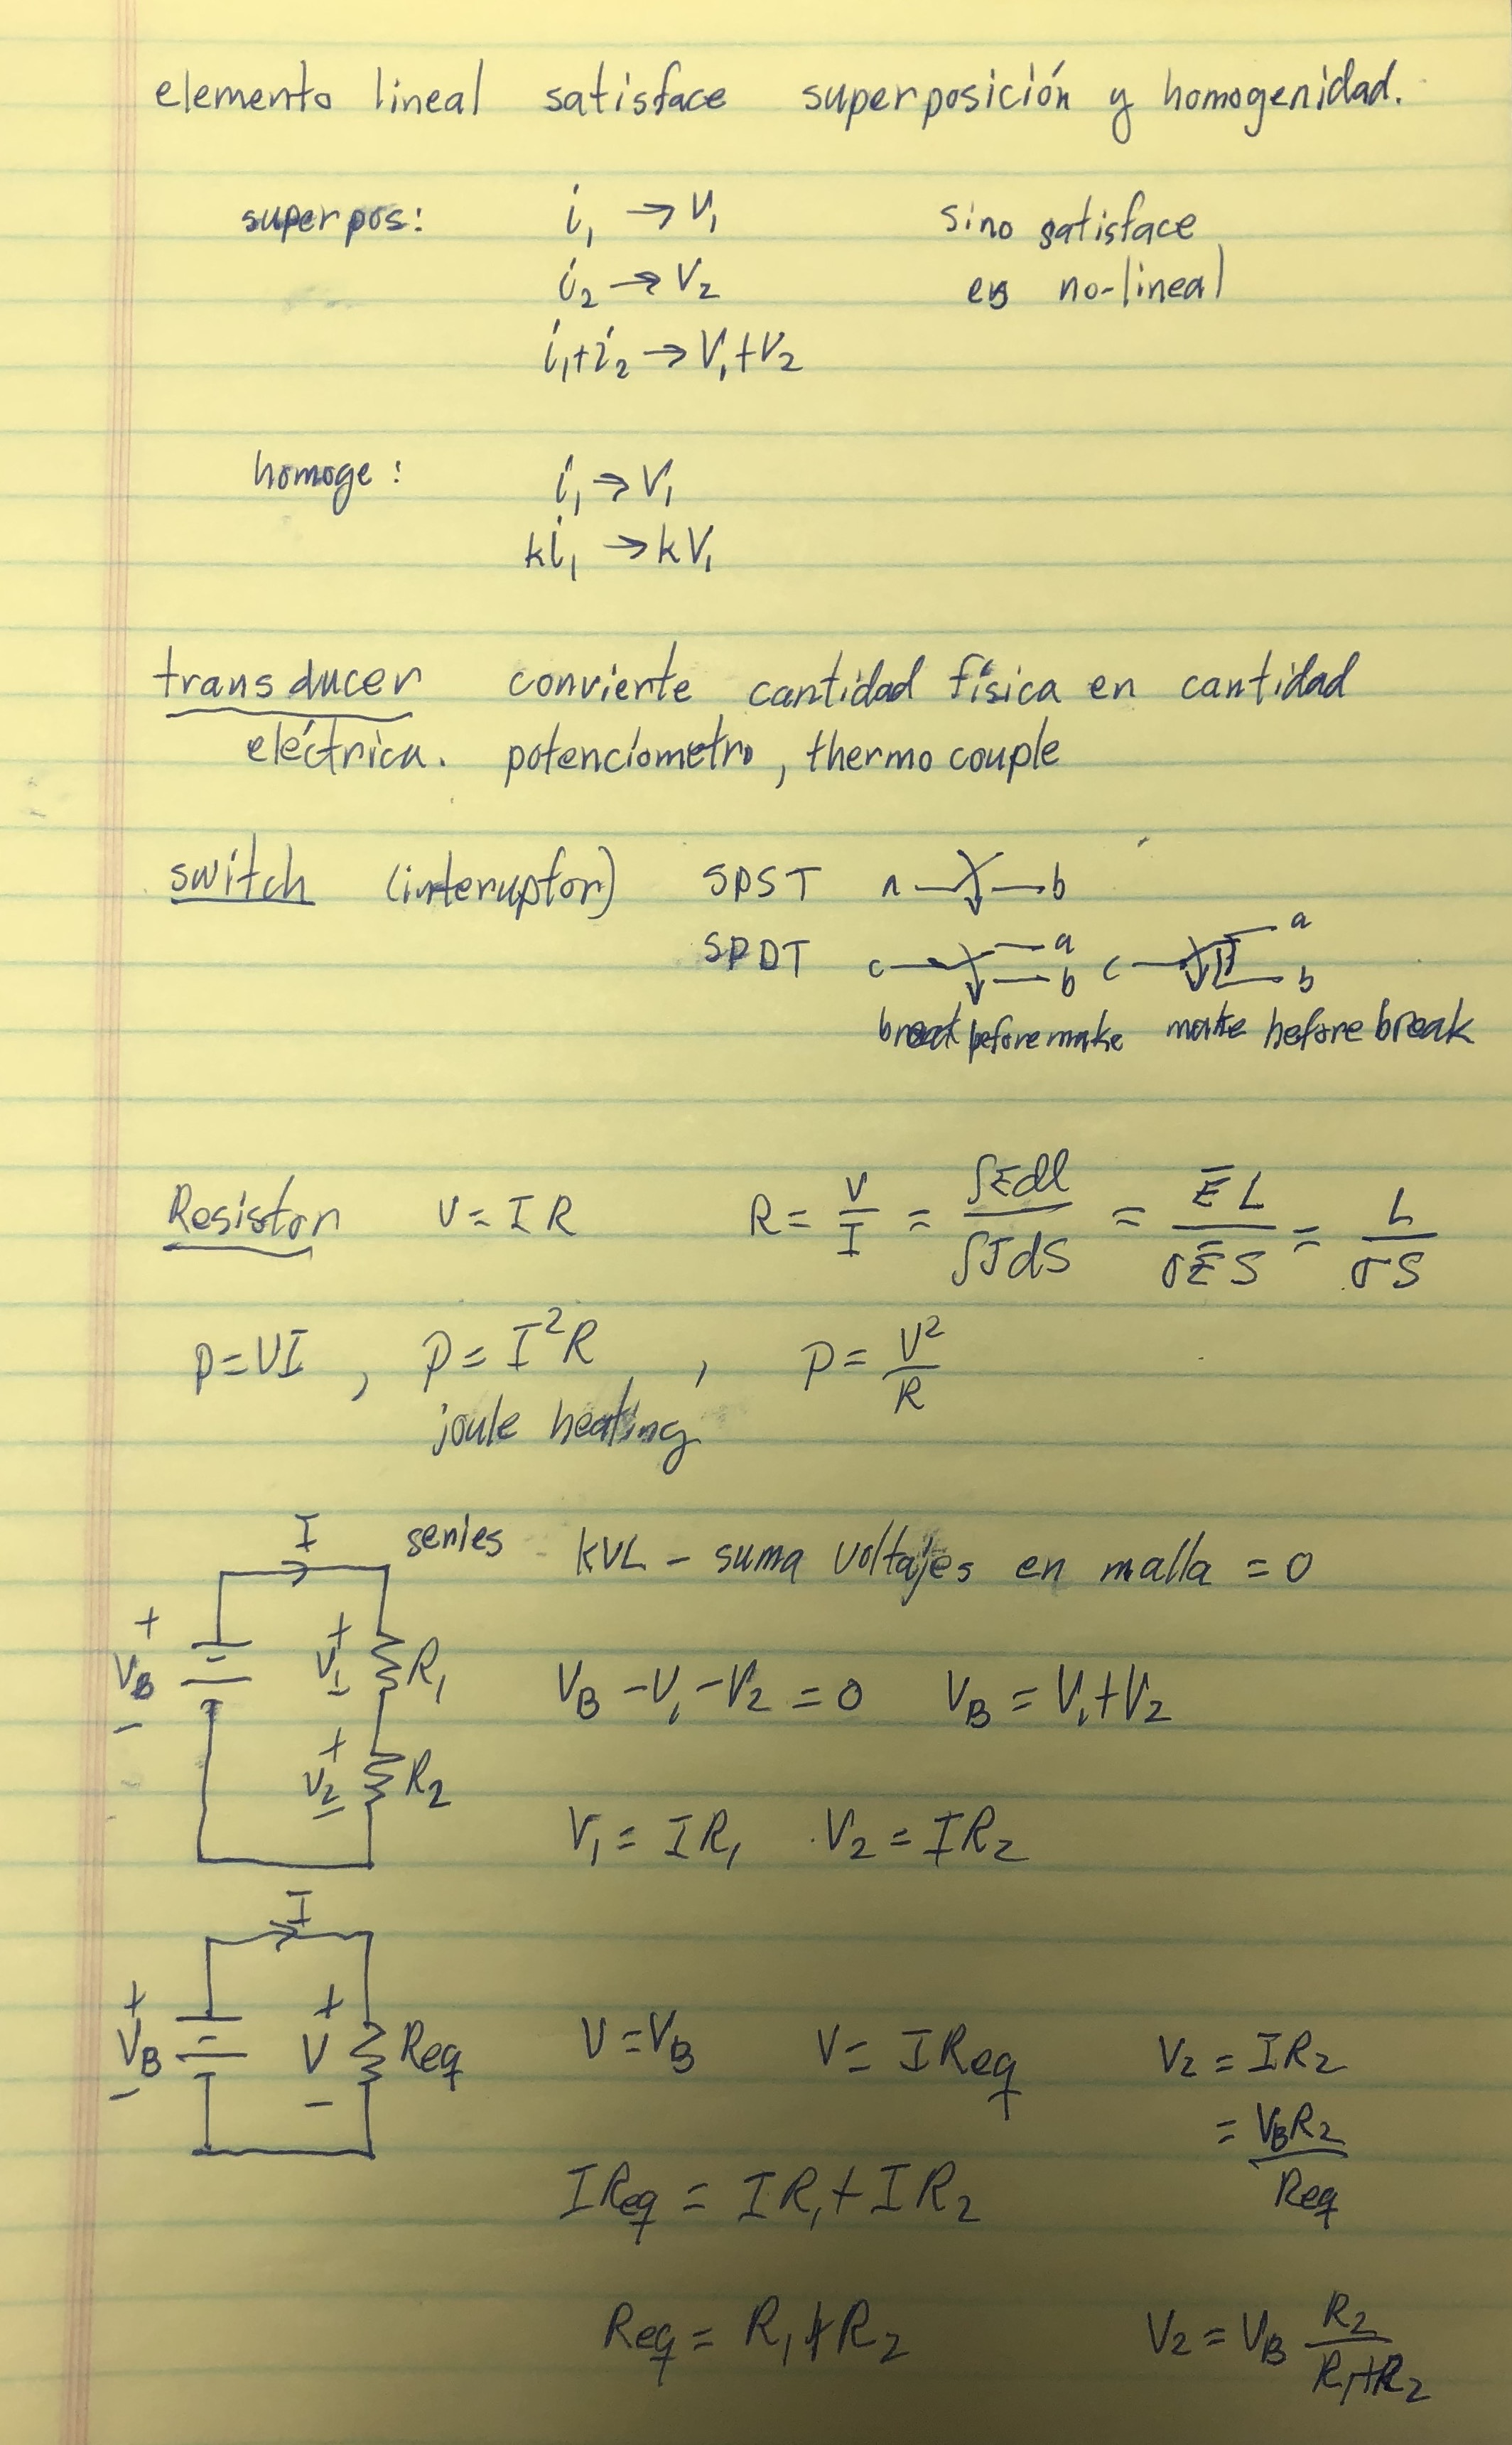 elemento lineal satisface superposición y homogenidad.
superpos: i₁ → V₁ sino satisface
i₂ → V₂ es no-lineal
i₁+i₂ → V₁+V₂
homoge: i₁ → V₁
ki₁ → kV₁
transducer convierte cantidad física en cantidad
eléctrica. potenciometro, thermocouple
switch (interuptor) SPST a b
SPDT c a b c a b
break before make make before break
Resistor V = IR R = V/I = ∫Edl/∫JdS = ĒL/σĒS = L/σS
P=VI, P=I²R, P=V²/R
joule heating
I series KVL - suma voltajes en malla = 0
+ VB - + V₁ - R₁ VB - V₁ - V₂ = 0 VB = V₁+V₂
+ V₂ - R₂ V₁ = IR₁ V₂ = IR₂
I
+ VB - + V - Req V = VB V = IReq V₂ = IR₂
= VBR₂/Req
IReq = IR₁ + IR₂
Req = R₁+R₂ V₂ = VB R₂/R₁+R₂